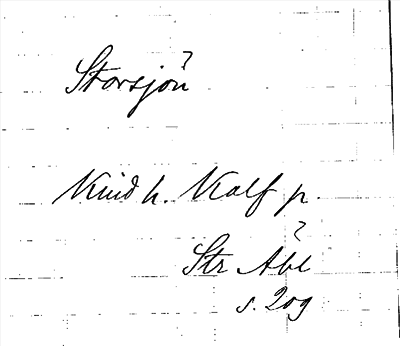 Storsjön ?
Kind h. Kalf p.
?
Str Åbl
s. 209